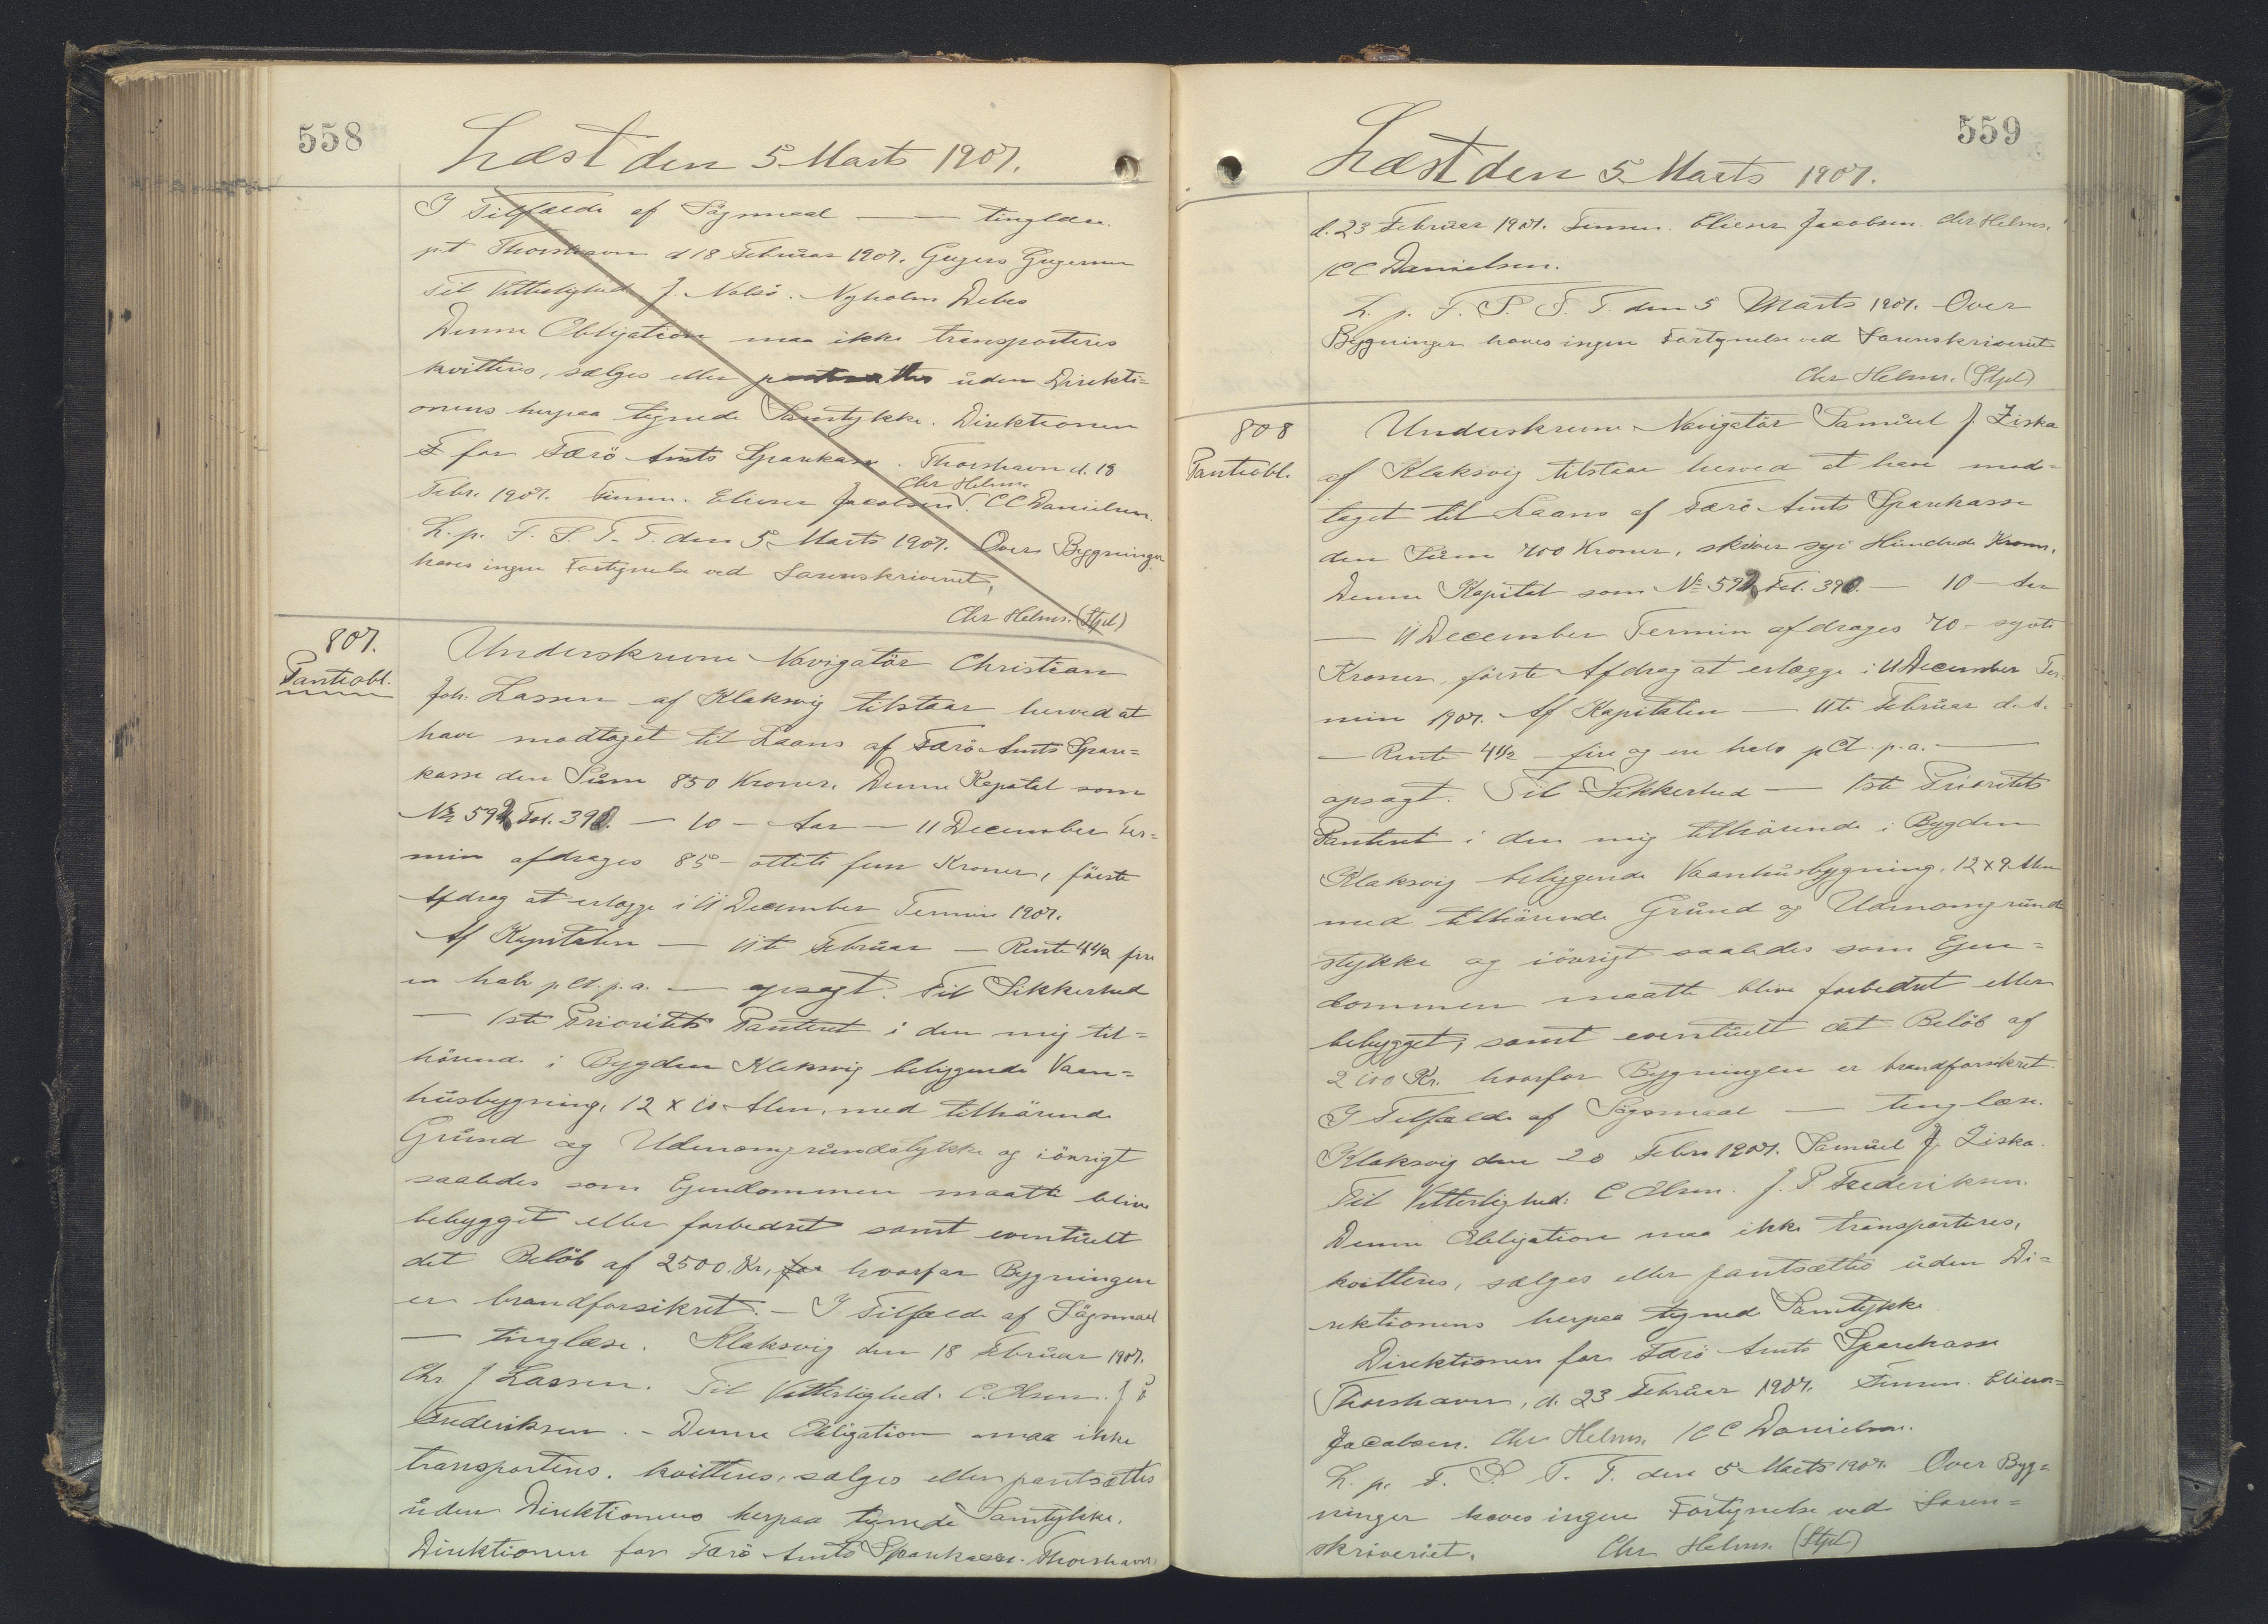 558
Læst den 5 Marts 1907.
I Tilfælde af Sögsmaal — tinglæse.
p.t Thorshavn d 18 Februar 1907.
Til Vitterlighed J. Nolsö. Nyholm Debes
Denne Obligation maa ikke transporteres
kvitteres, sælges eller pantsættes uden Direkti=
onens herpaa tegnede Samtykke. Direktionen
F for Færö Amts Sparekasse. Thorshavn d. 18
Chr Helms.
Febr. 1907. Finsen. Elieser Jacobsen. CC Danielsen.
L. p. F. S. T. T. den 5 Marts 1907. Over Bygninger
haves ingen Fortegnelse ved Sorenskriveriet,
Chr Helms. (Stpl)
807.
Panteobl.
Underskrevne Navigatör Christian
Joh. Lassen af Klaksvig tilstaar herved at
have modtaget til Laans af Færö Amts Spare=
kasse den Sum 850 Kroner. Denne Kapital som
No 592 Fol. 390. — 10 — Aar — 11 December Ter=
min afdrages 85 — otteti fem Kroner, förste
Afdrag at erlægge i 11 December Termin 1907.
Af Kapitalen — 11te Februar — Rente 4½ fire
en halv pCt. p.a. — opsagt. Til Sikkerhed
— 1ste Prioritets Panteret i den mig til=
hörende i Bygden Klaksvig beliggende Vaan=
husbygning, 12 x 10 Alen, med tilhörende
Grund og Udenomsgrundstykke og iövrigt
saaledes som Ejendommen maatte blive
bebygget eller forbedret samt eventuelt
det Belöb af 2500 Kr, for hvorfor Bygningen
er brandforsikret. — I Tilfælde af Sögsmaal
— tinglæse. Klaksvig den 18 Februar 1907.
Chr. J Lassen. Til Vitterlighed: C. Olsen. J P
Frederiksen. — Denne Obligation maa ikke
transporteres, kvitteres, sælges eller pantsættes
uden Direktionens herpaa tegnede Samtykke.
Direktionen for Færö Amts Sparekasse. Thorshavn,
559
Læst den 5 Marts 1907.
d. 23 Februar 1907. Finsen. Elieser Jacobsen. Chr Helms.
CC Danielsen.
L. p. F. S. T. T. den 5 Marts 1907. Over
Bygninger haves ingen Fortegnelse ved Sorenskriveriet
Chr Helms. (Stpl)
808
Panteobl.
Underskrevne Navigatör Samuel J. Ziska
af Klaksvig tilstaar herved at have mod=
taget til Laans af Færö Amts Sparekasse
den Sum 700 Kroner, skriver syv Hundrede Kroner.
Denne Kapital som No 592 Fol. 390. — 10 — Aar
— 11 December Termin afdrages 70 — syvti
Kroner, förste Afdrag at erlægge i 11 December Ter=
min 1907. Af Kapitalen — 11te Februar d. A.
— Rente 4½ — fire og en halv pCt. p.a. —
opsagt. Til Sikkerhed — 1ste Prioritets
Panteret i den mig tilhörende i Bygden
Klaksvig beliggende Vaanhusbygning, 12 x 9 Alen
med tilhörende Grund og Udenomsgrund
stykke og iövrigt saaledes som Ejen=
dommen maatte blive forbedret eller
bebygget, samt eventuelt det Belöb af
2100 Kr. hvorfor Bygningen er brandforsikret.
I Tilfælde af Sögsmaal — tinglæse.
Klaksvig den 20 Febr 1907. Samuel J. Ziska.
Til Vitterlighed: C Olsen. J. P. Frederiksen.
Denne Obligation maa ikke transporteres,
kvitteres, sælges eller pantsættes uden Di=
rektionens herpaa tegnede Samtykke.
Direktionen for Færö Amts Sparekasse
Thorshavn, d. 23 Februar 1907. Finsen. Elieser
Jacobsen. Chr Helms. CC Danielsen.
L. p. F. S. T. T. den 5 Marts 1907. Over Byg=
ninger haves ingen Fortegnelse ved Soren=
skriveriet. Chr Helms. (Stpl)